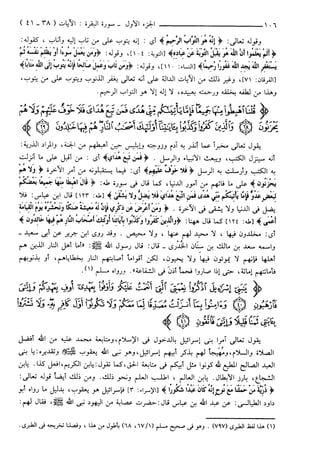 ١٠٦ الجزء الأول ـ سورة البقرة ـ الآيات (٣٨ ـ ٤١)
وقوله تعالى: ﴿إِنَّهُ هُوَ التَّوَّابُ الرَّحِيمُ﴾ أي: إنه يتوب على من تاب إليه وأناب، كقوله:
﴿أَلَمْ يَعْلَمُوا أَنَّ اللَّهَ هُوَ يَقْبَلُ التَّوْبَةَ عَنْ عِبَادِهِ﴾ [التوبة: ١٠٤]، وقوله: ﴿وَمَن يَعْمَلْ سُوءًا أَوْ يَظْلِمْ نَفْسَهُ ثُمَّ
يَسْتَغْفِرِ اللَّهَ يَجِدِ اللَّهَ غَفُورًا رَّحِيمًا﴾ [النساء: ١١٠]، وقوله: ﴿وَمَن تَابَ وَعَمِلَ صَالِحًا فَإِنَّهُ يَتُوبُ إِلَى اللَّهِ مَتَابًا﴾
[الفرقان: ٧١]، وغير ذلك من الآيات الدالة على أنه تعالى يغفر الذنوب ويتوب على من يتوب،
وهذا من لطفه بخلقه ورحمته بعبيده، لا إله إلا هو التواب الرحيم.
﴿قُلْنَا اهْبِطُوا مِنْهَا جَمِيعًا فَإِمَّا يَأْتِيَنَّكُم مِّنِّي هُدًى فَمَن تَبِعَ هُدَايَ فَلَا خَوْفٌ عَلَيْهِمْ وَلَا هُمْ
يَحْزَنُونَ ﴿٣٨﴾ وَالَّذِينَ كَفَرُوا وَكَذَّبُوا بِآيَاتِنَا أُولَٰئِكَ أَصْحَابُ النَّارِ هُمْ فِيهَا خَالِدُونَ ﴿٣٩﴾
يقول تعالى مخبراً عما أنذر به آدم وزوجته وإبليس حين أهبطهم من الجنة، والمراد الذرية:
أنه سينزل الكتب، ويبعث الأنبياء والرسل . ﴿فَمَن تَبِعَ هُدَايَ﴾ أي: من أقبل على ما أنزلت
به الكتب وأرسلت به الرسل ﴿فَلَا خَوْفٌ عَلَيْهِمْ﴾ أي: فيما يستقبلونه من أمر الآخرة ﴿وَلَا هُمْ
يَحْزَنُونَ﴾ على ما فاتهم من أمور الدنيا، كما قال في سورة طه: ﴿قَالَ اهْبِطَا مِنْهَا جَمِيعًا بَعْضُكُمْ
لِبَعْضٍ عَدُوٌّ فَإِمَّا يَأْتِيَنَّكُم مِّنِّي هُدًى فَمَنِ اتَّبَعَ هُدَايَ فَلَا يَضِلُّ وَلَا يَشْقَى﴾ [طه: ١٢٣] قال ابن عباس: فلا
يضل في الدنيا ولا يشقى في الآخرة. ﴿وَمَنْ أَعْرَضَ عَن ذِكْرِي فَإِنَّ لَهُ مَعِيشَةً ضَنكًا وَنَحْشُرُهُ يَوْمَ الْقِيَامَةِ
أَعْمَى﴾ [طه: ١٢٤] كما قال ههنا: ﴿وَالَّذِينَ كَفَرُوا وَكَذَّبُوا بِآيَاتِنَا أُولَٰئِكَ أَصْحَابُ النَّارِ هُمْ فِيهَا خَالِدُونَ﴾
أي: مخلدون فيها، لا محيد لهم عنها، ولا محيص. وقد روى ابن جرير عن أبي سعيد ـ
واسمه سعد بن مالك بن سنان الخُدْري ـ قال: قال رسول الله ﷺ: «أما أهل النار الذين هم
أهلها فإنهم لا يموتون فيها ولا يحيون، لكن أقواماً أصابتهم النار بخطاياهم، أو بذنوبهم
فأماتتهم إماتة، حتى إذا صاروا فحماً أُذن في الشفاعة». ورواه مسلم (١).
﴿يَا بَنِي إِسْرَائِيلَ اذْكُرُوا نِعْمَتِيَ الَّتِي أَنْعَمْتُ عَلَيْكُمْ وَأَوْفُوا بِعَهْدِي أُوفِ بِعَهْدِكُمْ وَإِيَّايَ
فَارْهَبُونِ ﴿٤٠﴾ وَآمِنُوا بِمَا أَنزَلْتُ مُصَدِّقًا لِّمَا مَعَكُمْ وَلَا تَكُونُوا أَوَّلَ كَافِرٍ بِهِ وَلَا تَشْتَرُوا
بِآيَاتِي ثَمَنًا قَلِيلًا وَإِيَّايَ فَاتَّقُونِ ﴿٤١﴾
يقول تعالى آمراً بني إسرائيل بالدخول في الإسلام، ومتابعة محمد عليه من الله أفضل
الصلاة والسلام، ومُهيجاً لهم بذكر أبيهم إسرائيل، وهو نبي الله يعقوب ﷺ وتقديره: يا بني
العبد الصالح المطيع لله كونوا مثل أبيكم في متابعة الحق، كما تقول: يابن الكريم، افعل كذا. يابن
الشجاع، بارز الأبطال. يابن العالم، اطلب العلم ونحو ذلك. ومن ذلك أيضاً قوله تعالى:
﴿ذُرِّيَّةَ مَنْ حَمَلْنَا مَعَ نُوحٍ إِنَّهُ كَانَ عَبْدًا شَكُورًا﴾ [الإسراء: ٣] فإسرائيل هو يعقوب، بدليل ما رواه أبو
داود الطيالسي: عن عبد الله بن عباس قال: حضرت عصابة من اليهود نبي الله ﷺ، فقال لهم:
(١) هذا لفظ الطبري (٧٩٧). وهو في صحيح مسلم (١٧/١، ٦٨) بأطول من هذا، وفصلنا تخريجه في الطبري.